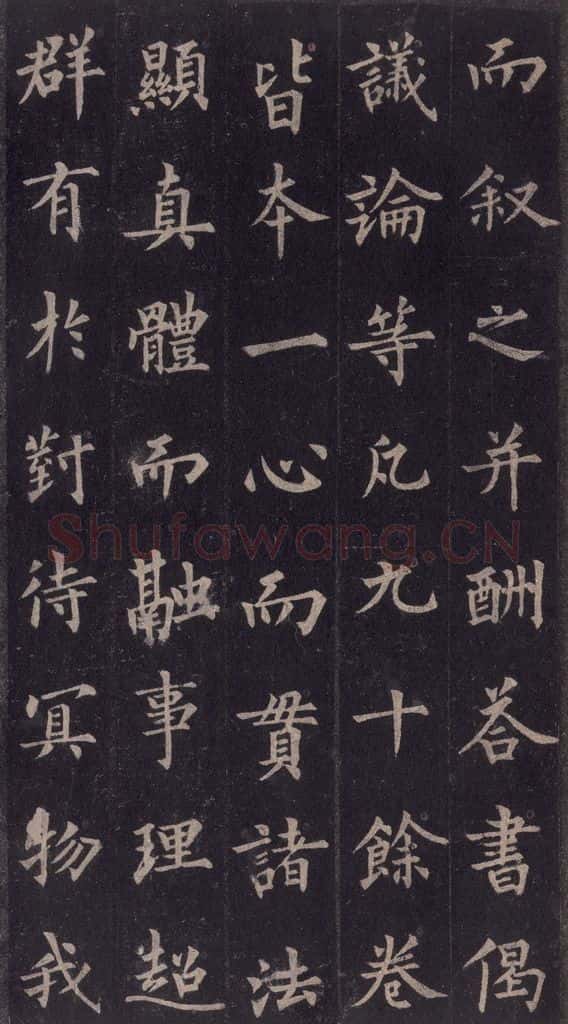 而叙之并酬荅書偈
議論等凡九十餘卷
皆本一心而貫諸法
顯真體而融事理超
群有於對待冥物我
Shufawang.CN